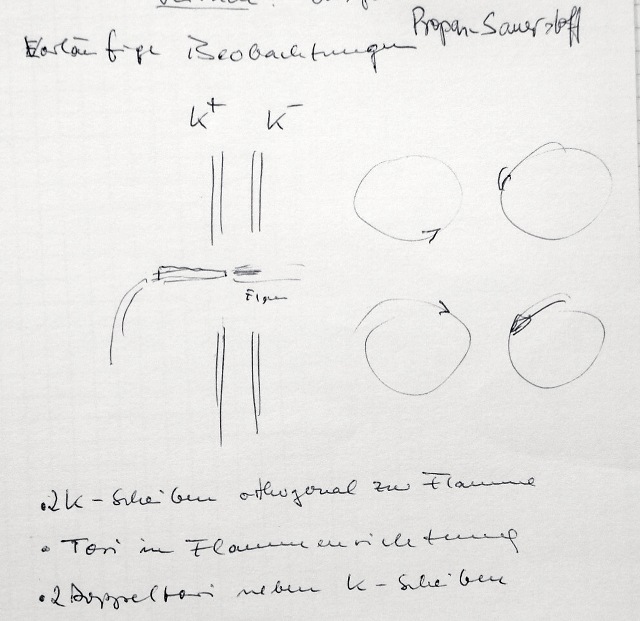 Propan-Sauerstoff
Vorläufige Beobachtungen
K+ K-
• 2 K-Scheiben orthogonal zur Flamme
• Tori in Flammenrichtung
• 2 Doppeltori neben K-Scheiben